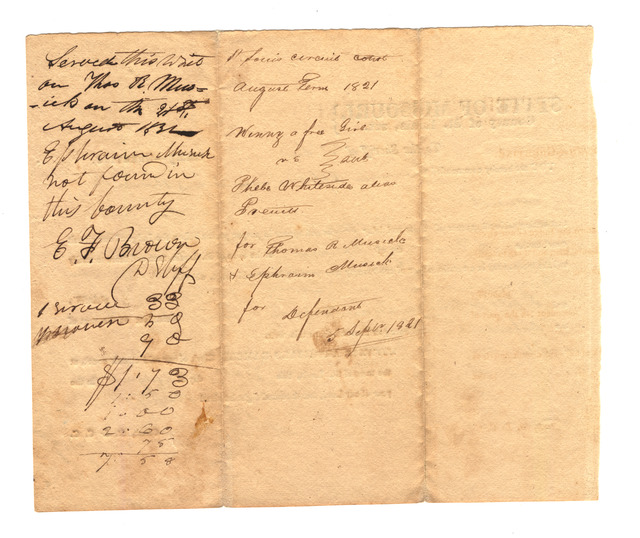 Served this Writ
on Thos R. Mus-
-ick on the 21st
August 1821
Ephraim Musick
not found in
this County
E. F. Brown
D Shff
1 Service 33
50
90
$1.73
1.50
1.00
2.60
75
7.58
St Louis circuit court
August Term 1821
Winny a free Girl
vs } Sub
Phebe Whitesides alias
Prewitt
for Thomas R Musick
& Ephraim Musick
for Defendant
5 Sept. 1821